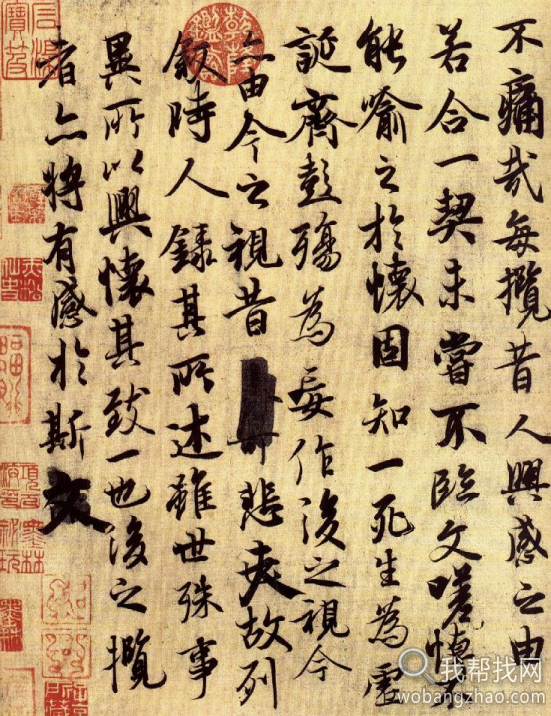 不痛哉每攬昔人興感之由
若合一契未嘗不臨文嗟悼不
能喻之於懷固知一死生為虛
誕齊彭殤為妄作後之視今
亦由今之視昔悲夫故列
敘時人錄其所述雖世殊事
異所以興懷其致一也後之攬
者亦將有感於斯文
乾隆鑑賞
我帮找网
wobangzhao.com